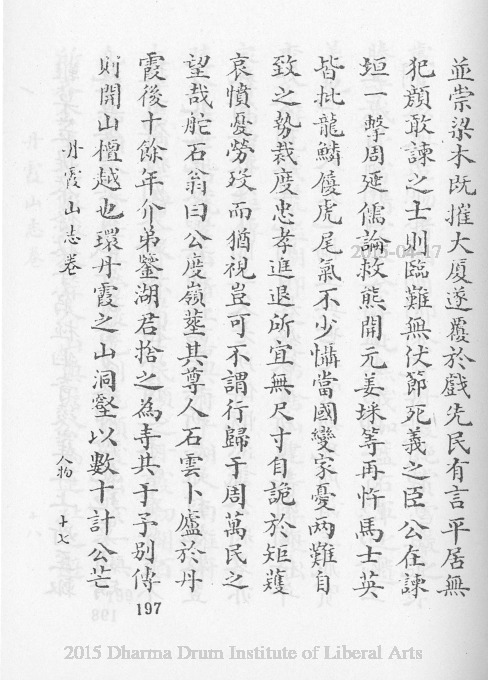 並崇梁木既摧大厦遂覆於戲先民有言平居無
犯顏敢諫之士則臨難無伏節死義之臣公在諫
垣一擊周延儒論救熊開元姜埰等再忤馬士英
皆批龍鱗履虎尾氣不少懾當國變家憂兩難自
致之勢裁度忠孝進退所宜無尺寸自詭於矩矱
哀憤憂勞歿而猶視豈可不謂行歸于周萬民之
望哉舵石翁曰公度嶺塟其尊人石雲卜廬於丹
霞後十餘年介弟鑒湖君捨之為寺其于予別傳
則開山檀越也環丹霞之山洞壑以數十計公芒
丹霞山志卷 人物 十七
197
2015-04-17
2015 Dharma Drum Institute of Liberal Arts